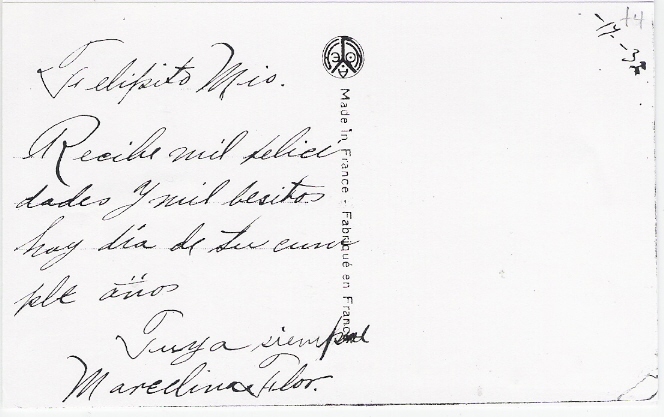 Felipito Mio.
Recibe mil felici
dades Y mil besitos
hoy día de tu cum
ple años
Tuya siempre
Marcelina Flor.
Made in France - Fabriqué en France